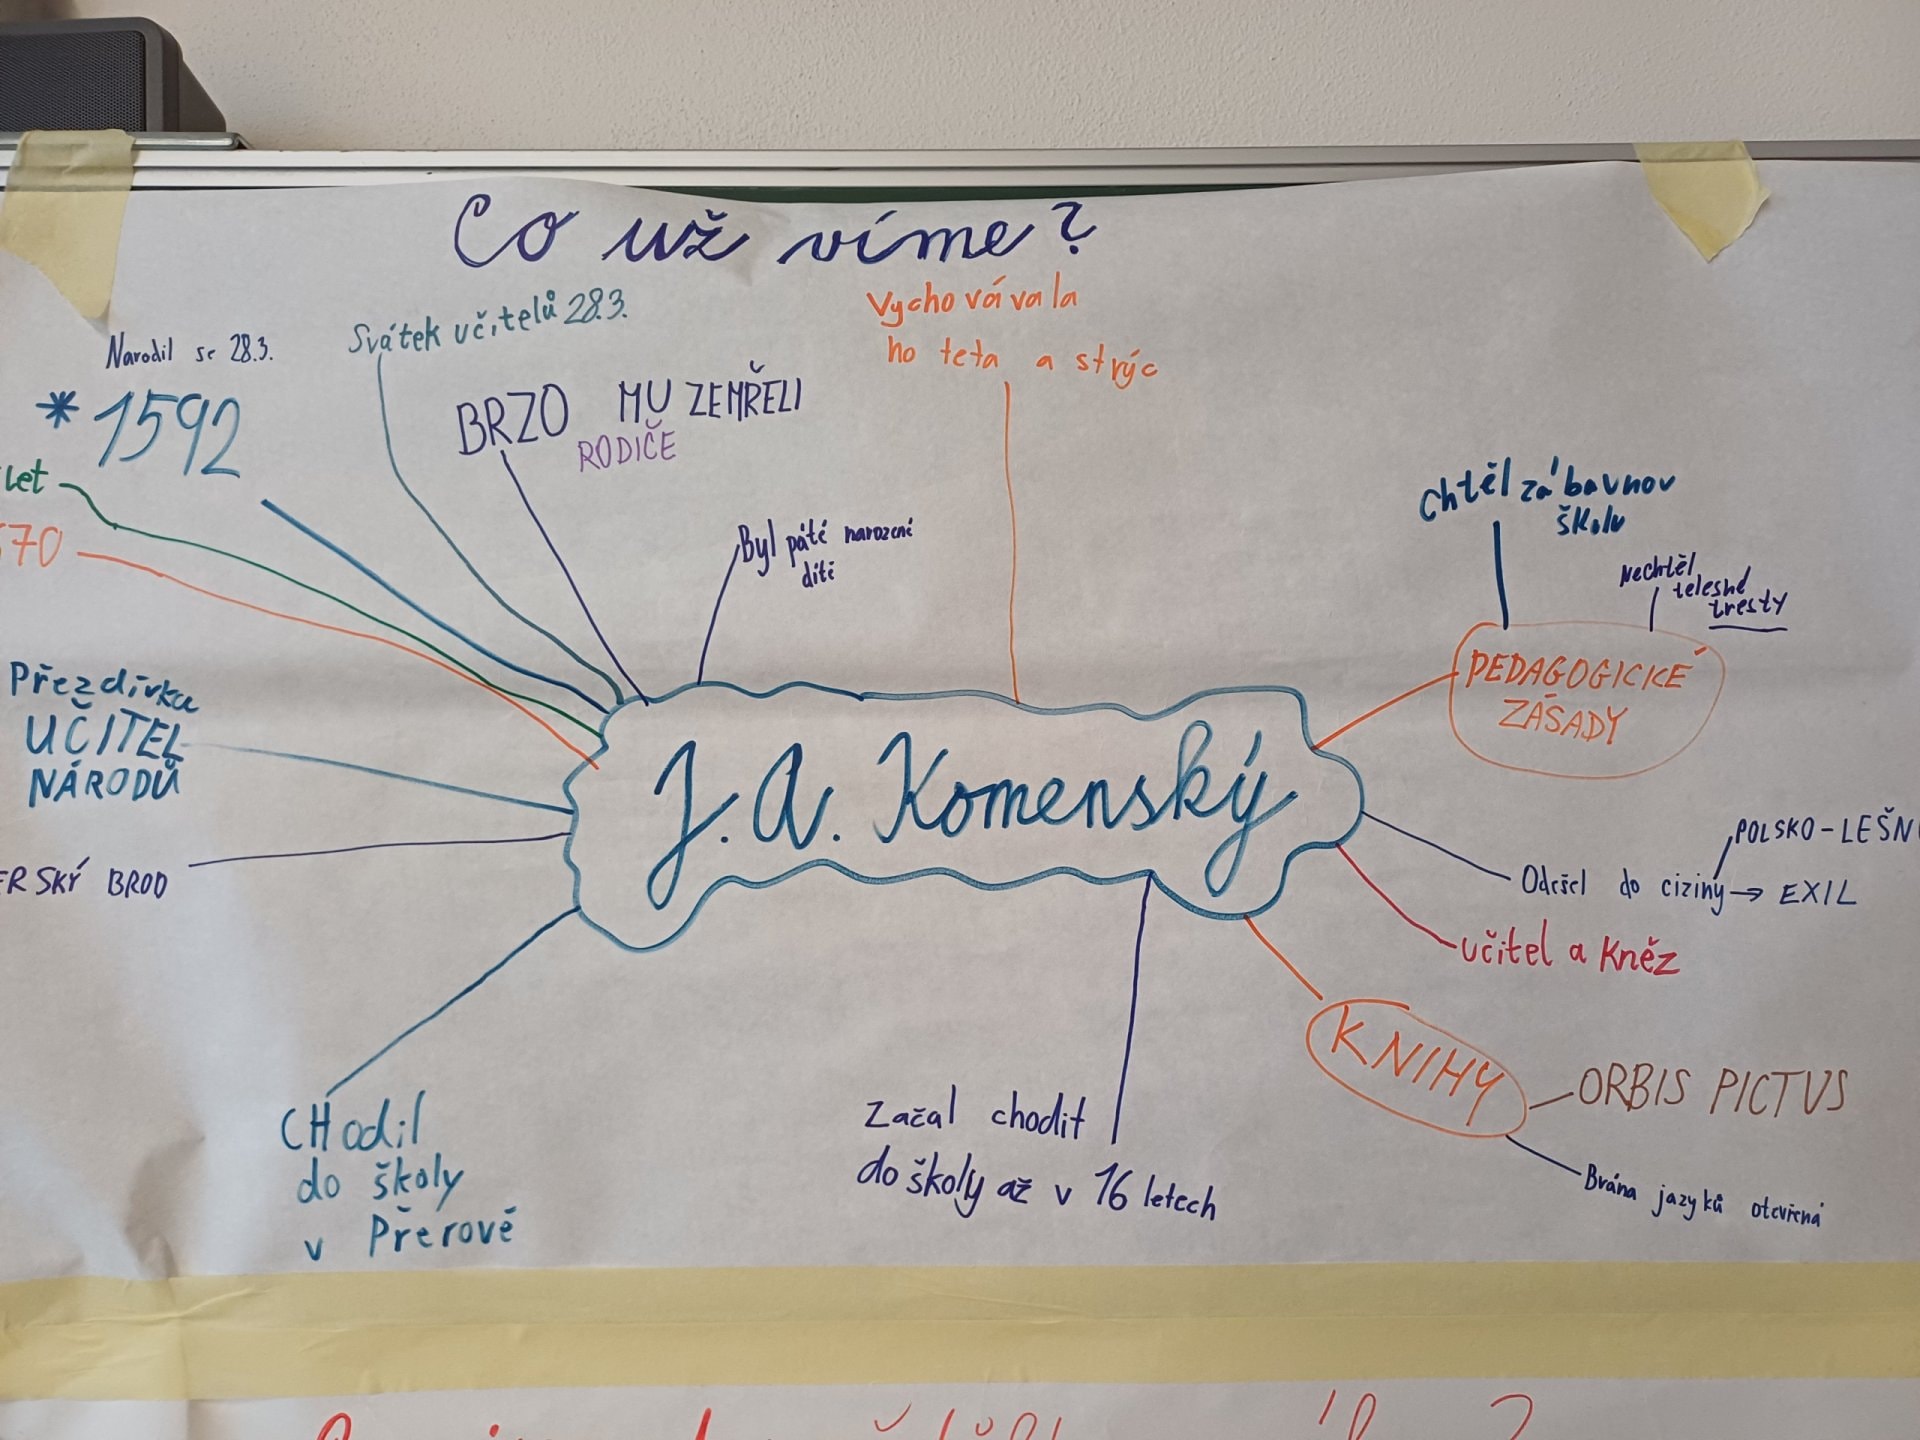 Co už víme?
Narodil se 28.3.
* 1592
Svátek učitelů 28.3.
BRZO MU ZEMŘELI
RODIČE
Vychovávala
ho teta a strýc
Byl páté narozené
dítě
let
70
Chtěl zábavnou
školu
Nechtěl
telesné
tresty
PEDAGOGICKÉ
ZÁSADY
Přezdívka
UČITEL
NÁRODŮ
J. A. Komenský
ERSKÝ BROD
POLSKO - LEŠN
Odešel do ciziny → EXIL
učitel a kněz
KNIHY
ORBIS PICTUS
Brána jazyků otevřená
CHodil
do školy
v Přerově
Začal chodit
do školy až v 16 letech